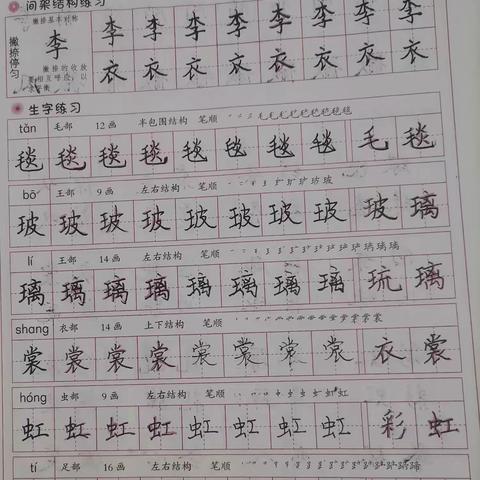 间架结构练习
撇捺停匀
撇捺基本对称
李 李 李 李 李 李 李 李 李
撇捺的收放
要相互呼应，以
求平衡
衣 衣 衣 衣 衣 衣 衣 衣
生字练习
tǎn 毛部 12画 半包围结构 笔顺
毯 毯 毯 毯 毯 毯 毯 毯 毛 毯
bō 王部 9画 左右结构 笔顺
玻 玻 玻 玻 玻 玻 玻 玻 玻 璃
lí 王部 14画 左右结构 笔顺
璃 璃 璃 璃 璃 璃 璃 璃 琉 璃
shang 衣部 14画 上下结构 笔顺
裳 裳 裳 裳 裳 裳 裳 裳 衣 裳
hóng 虫部 9画 左右结构 笔顺
虹 虹 虹 虹 虹 虹 虹 虹 彩 虹
tí 足部 16画 左右结构 笔顺